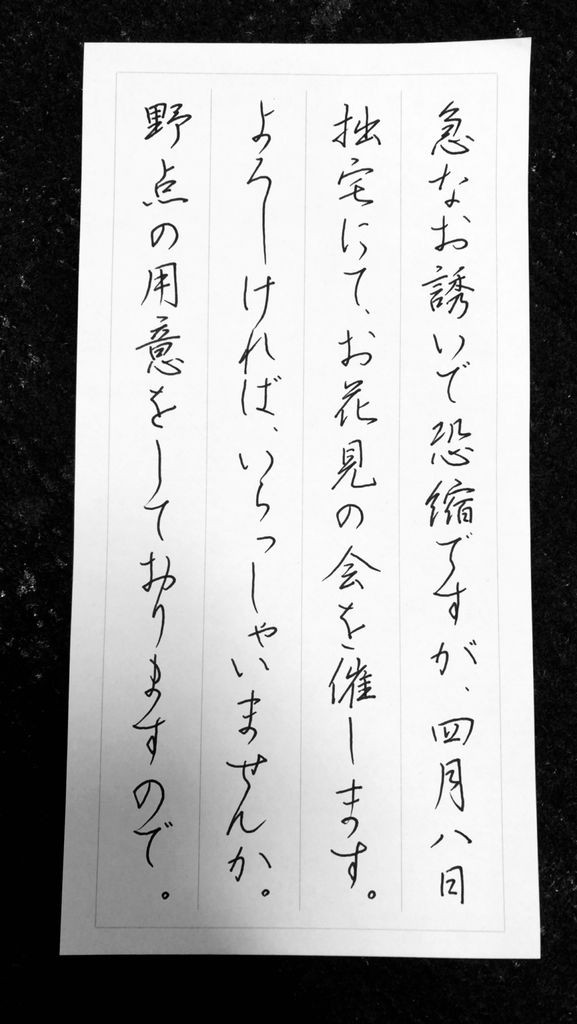 急なお誘いで恐縮ですが、四月八日
拙宅にて、お花見の会を催します。
よろしければ、いらっしゃいませんか。
野点の用意をしておりますので。